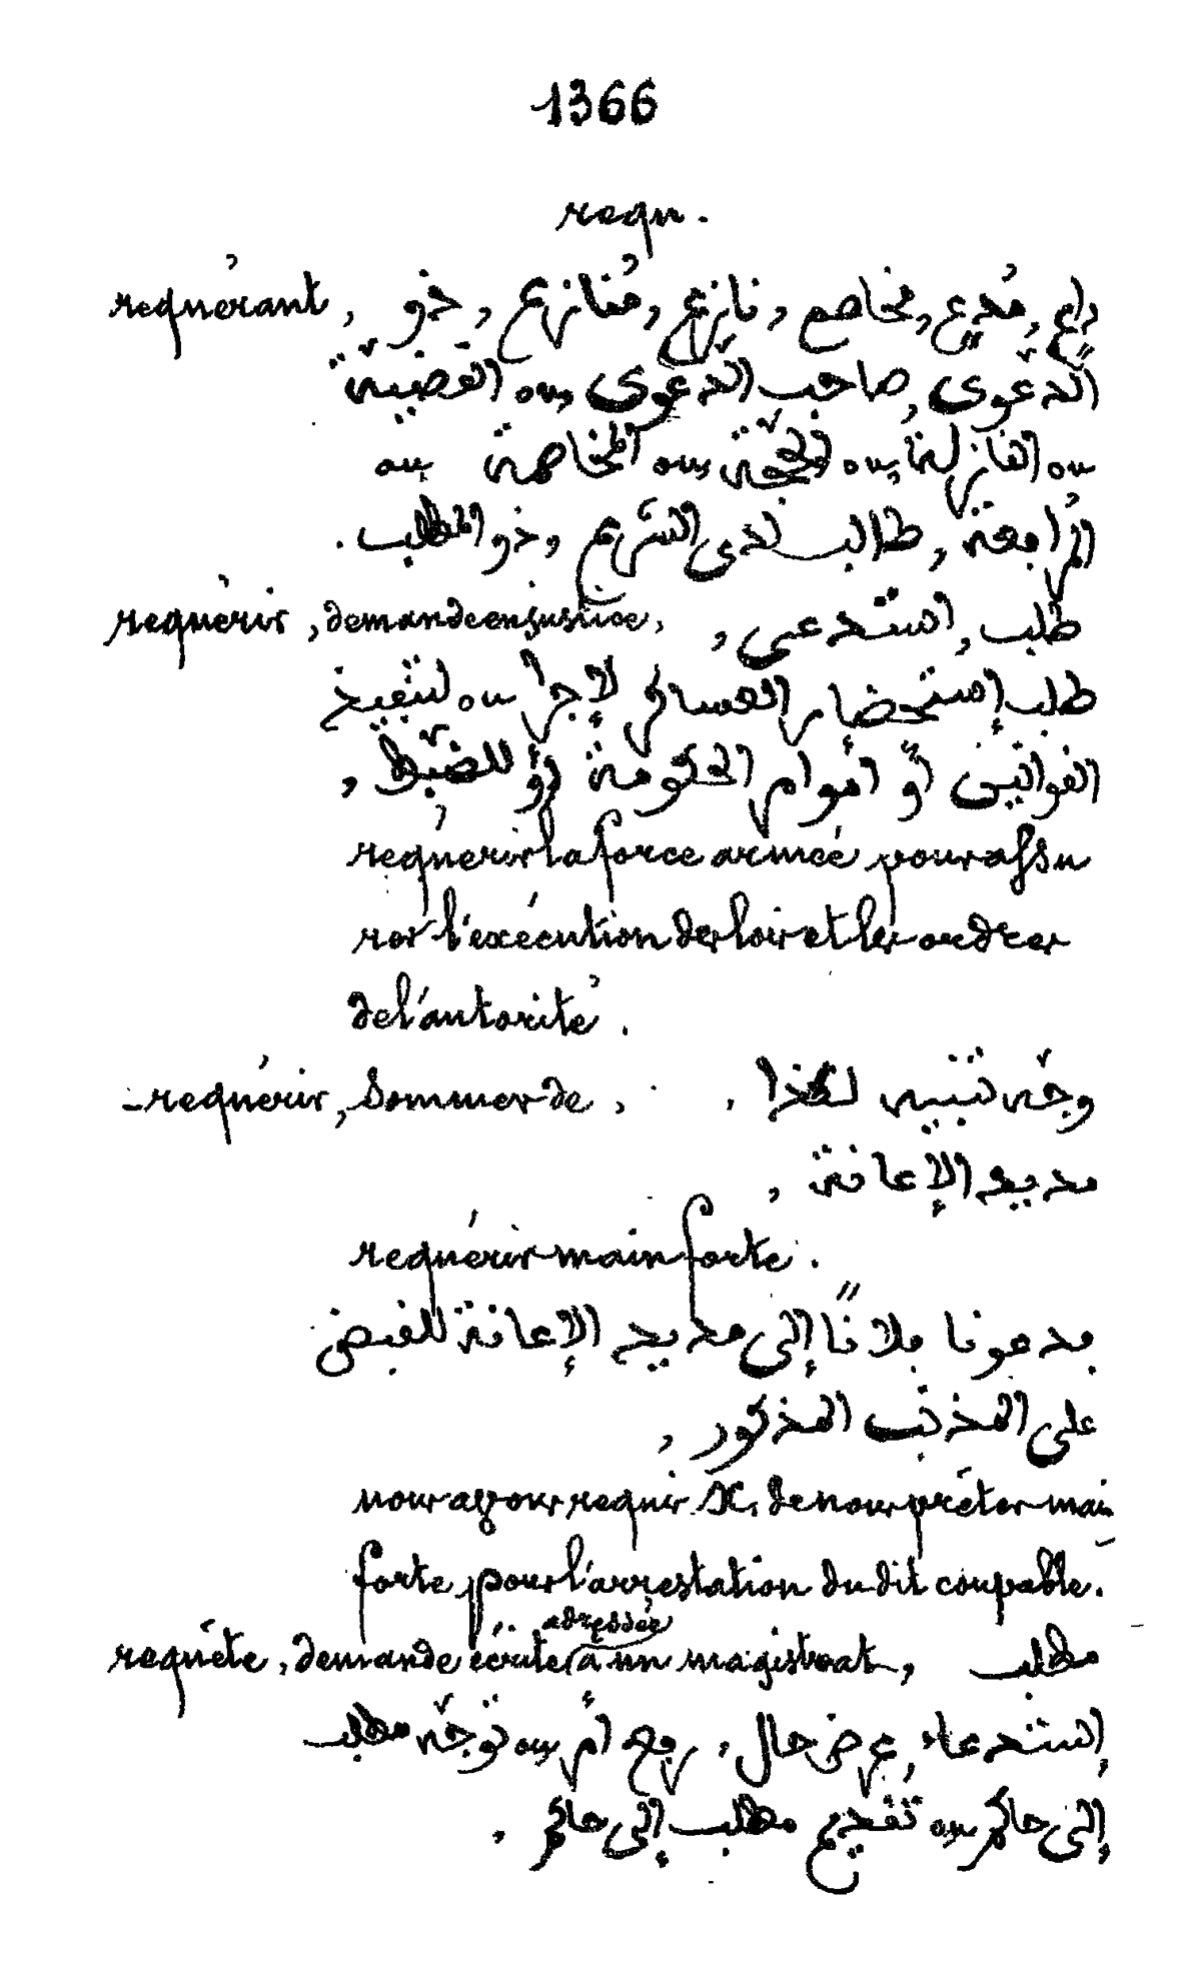 1366
requ.
requérant, داعٍ, مُدَّعٍ, مخاصم, نازع, مُنازع, ذو
الدعوى, صاحب الدعوى ou القضيّة
ou النازلة ou الحجّة ou المخاصمة ou
المُرافعة, طالب لدى الشرع, ذو المطلب.
requérir, demande en justice, طلب, استدعى,
طلب إستحضار العساكر لإجرا ou لتنفيذ
القوانين أو أموام الحكومة أو للضبط,
requérir la force armée pour assu
rer l'exécution des lois et les ordres
de l'autorité.
- requérir, sommer de, وجّه تنبيه لكذا,
مد يد الإعانة,
requérir main forte.
فدعونا فلانًا إلى مد يد الإعانة للقبض
على المذنب المذكور,
nous avons requir X. de nous prêter main
forte, pour l'arrestation du dit coupable.
requête, demande écrite (adressée) à un magistrat, مطلب
إستدعاء, عرض حال, رفع أمر ou توجّه مطلب
إلى حاكم ou تقديم مطلب إلى حاكم.